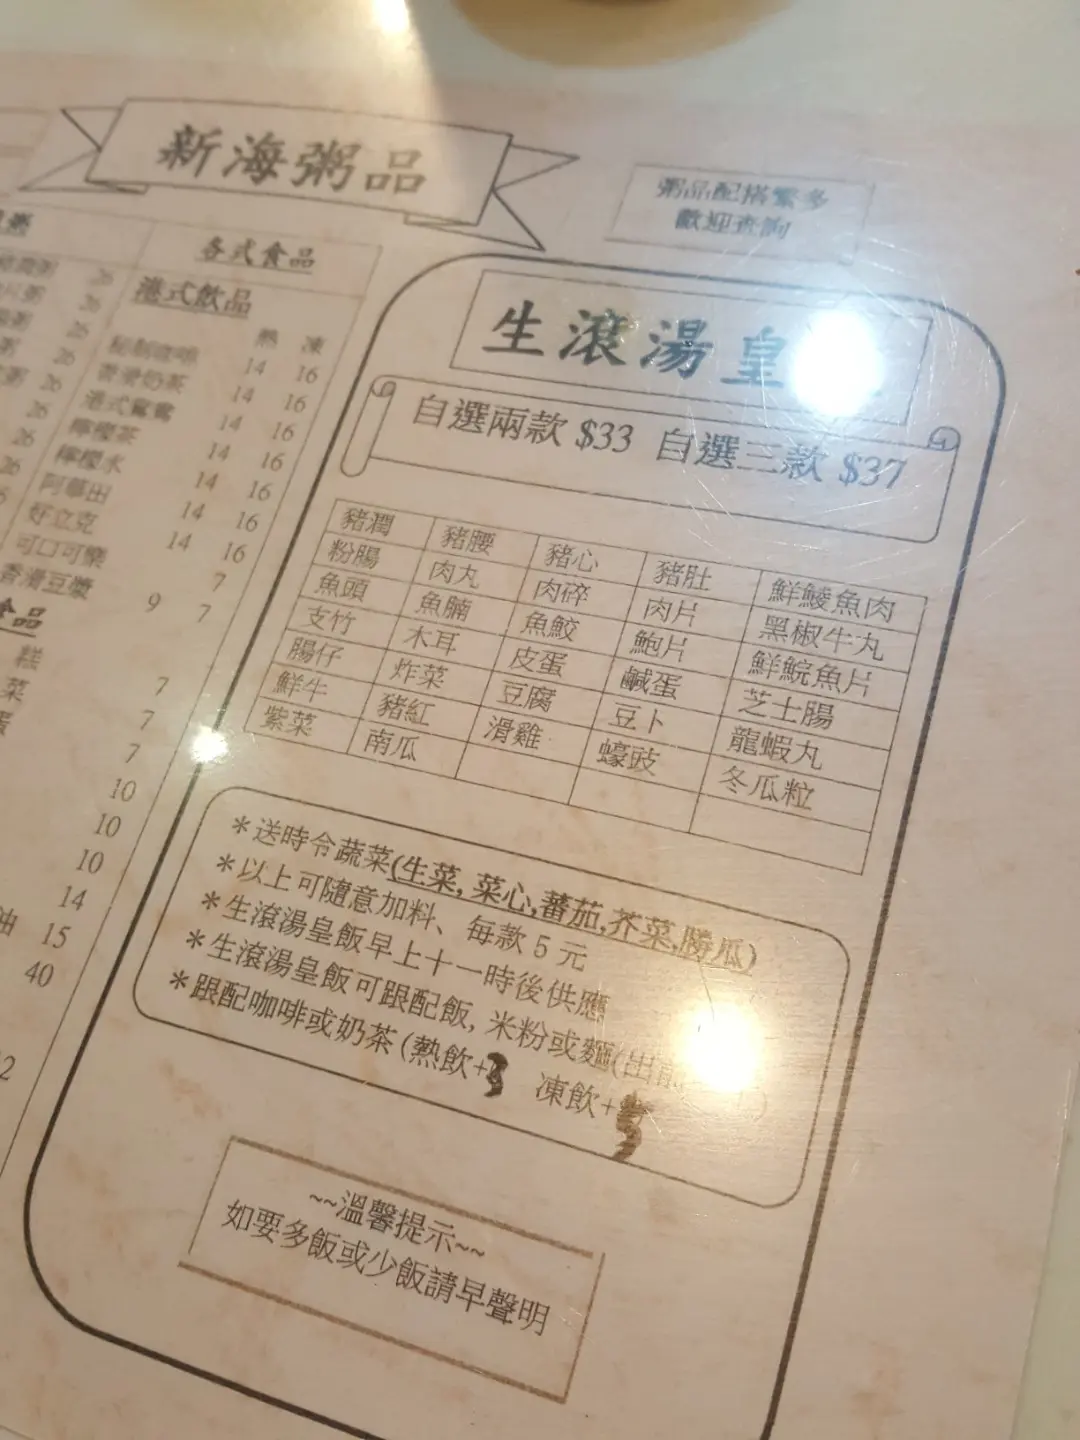 新海粥品
粥品配搭繁多
歡迎查詢
各式食品
港式飲品
熱 凍
秘制咖啡 14 16
香滑奶茶 14 16
港式鴛鴦 14 16
檸檬茶 14 16
檸檬水 14 16
阿華田 14 16
好立克 14 16
可口可樂 7
香滑豆漿 9 7
食品
糕 7
菜 7
7
10
10
10
14
油 15
40
生滾湯皇
自選兩款 $33 自選三款 $37
豬潤 豬腰 豬心 豬肚 鮮鯪魚肉
粉腸 肉丸 肉碎 肉片 黑椒牛丸
魚頭 魚腩 魚鮫 鮑片 鮮鯇魚片
支竹 木耳 皮蛋 鹹蛋 芝士腸
腸仔 炸菜 豆腐 豆卜 龍蝦丸
鮮牛 豬紅 滑雞 蠔豉 冬瓜粒
紫菜 南瓜
*送時令蔬菜(生菜, 菜心,蕃茄,芥菜,勝瓜)
*以上可隨意加料、每款 5 元
*生滾湯皇飯早上十一時後供應
*生滾湯皇飯可跟配飯, 米粉或麵(出前
*跟配咖啡或奶茶 (熱飲+3 凍飲+5
~~溫馨提示~~
如要多飯或少飯請早聲明